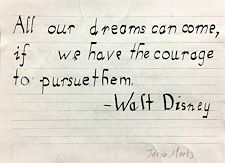 All our dreams can come,
if we have the courage
to pursue them.
-Walt Disney